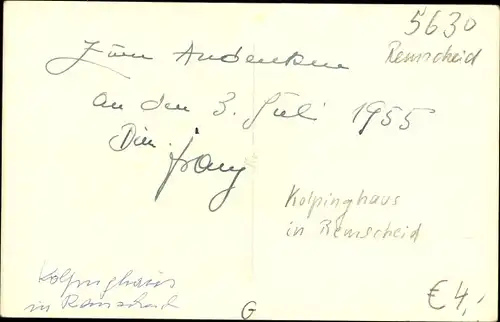 5630
Remscheid
Zum Andenken
an den 3. Juli 1955
Franz
Kolpinghaus
in Remscheid
Kolpinghaus
in Remscheid
€ 4,-
G